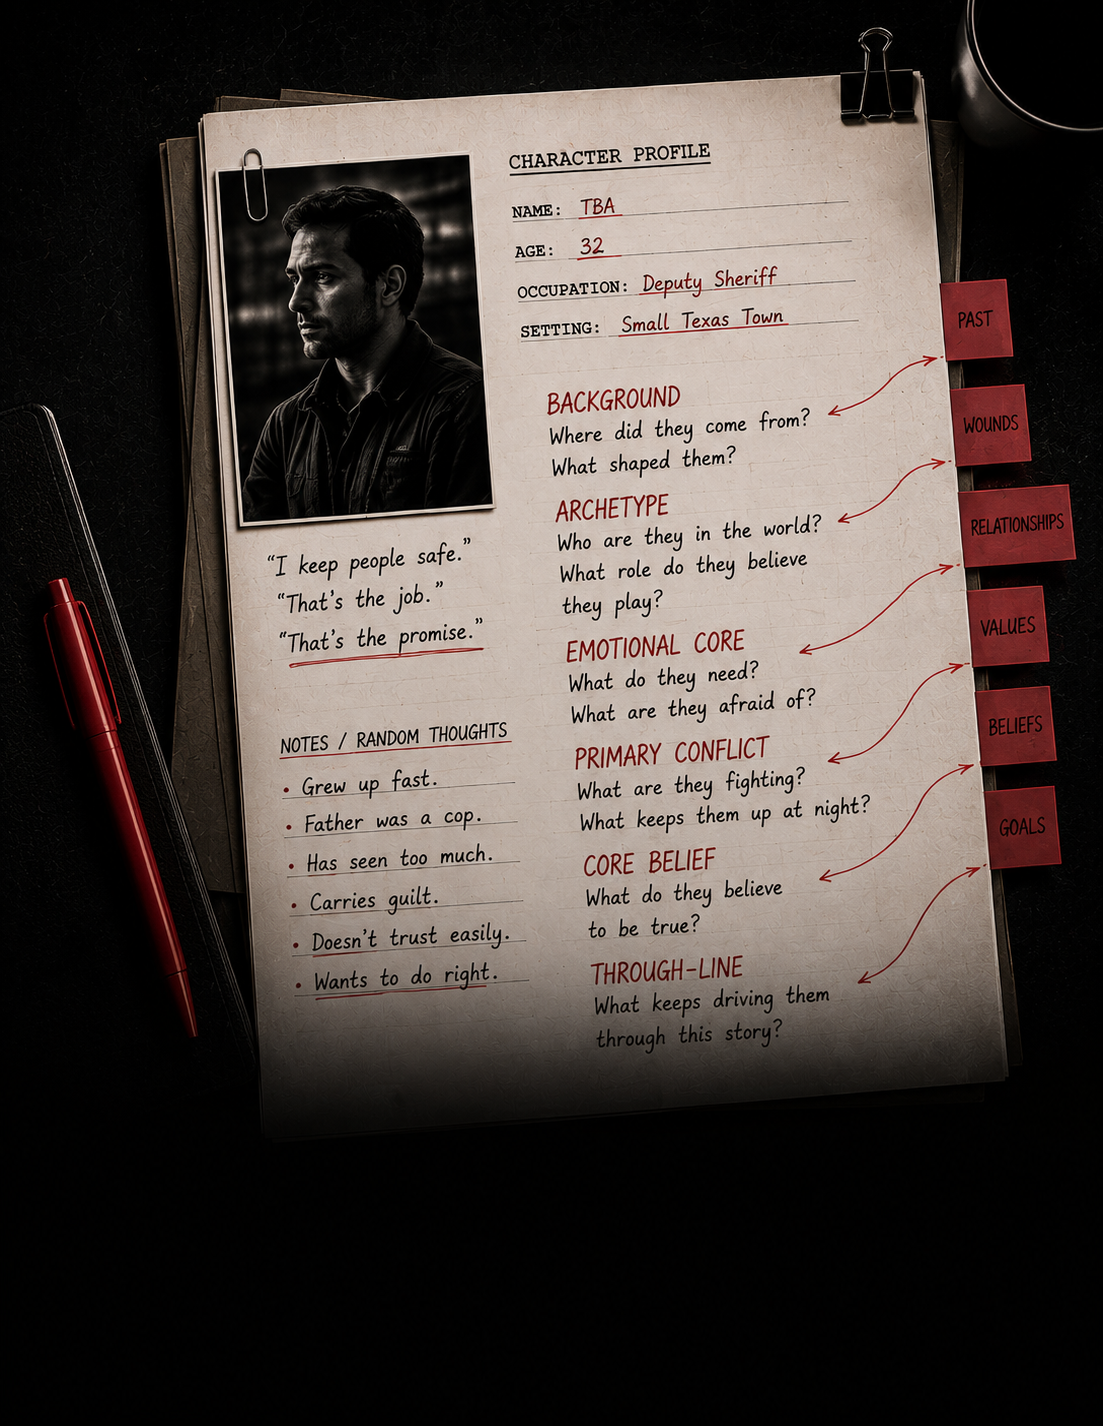 CHARACTER PROFILE
NAME: TBA
AGE: 32
OCCUPATION: Deputy Sheriff
SETTING: Small Texas Town
“I keep people safe.”
“That’s the job.”
“That’s the promise.”
NOTES / RANDOM THOUGHTS
• Grew up fast.
• Father was a cop.
• Has seen too much.
• Carries guilt.
• Doesn’t trust easily.
• Wants to do right.
BACKGROUND
Where did they come from?
What shaped them?
ARCHETYPE
Who are they in the world?
What role do they believe
they play?
EMOTIONAL CORE
What do they need?
What are they afraid of?
PRIMARY CONFLICT
What are they fighting?
What keeps them up at night?
CORE BELIEF
What do they believe
to be true?
THROUGH-LINE
What keeps driving them
through this story?
PAST
WOUNDS
RELATIONSHIPS
VALUES
BELIEFS
GOALS